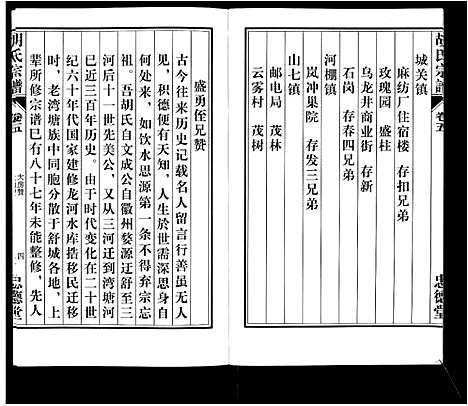 胡氏宗譜
卷五
忠德堂
城关镇
麻纺厂住宿楼 存扣兄弟
玫瑰园 盛柱
乌龙井商业街 存新
石岗 存春四兄弟
河棚镇
岚冲果院 存发三兄弟
山七镇
邮电局 茂林
云雾村 茂树
盛勇侄兄赞
古今往来历史记载名人留言行善虽无人
见，积德便有天知，人生於世需深思身自
何处来，如饮水思源第一条不得弃宗忘
祖。吾胡氏自文成公自徽州婺源迂舒至三
河后十一世先美公，又从三河迁到湾塘河
已近三百年历史。由于时代变化在二十世
纪六十年代国家建修龙河水库掿移民迁移
时，老湾塘族中同胞分散于舒城各地，上
辈所修宗谱巳有八十七年未能整修，先人
胡氏宗譜
卷五
大房赞
四
忠德堂